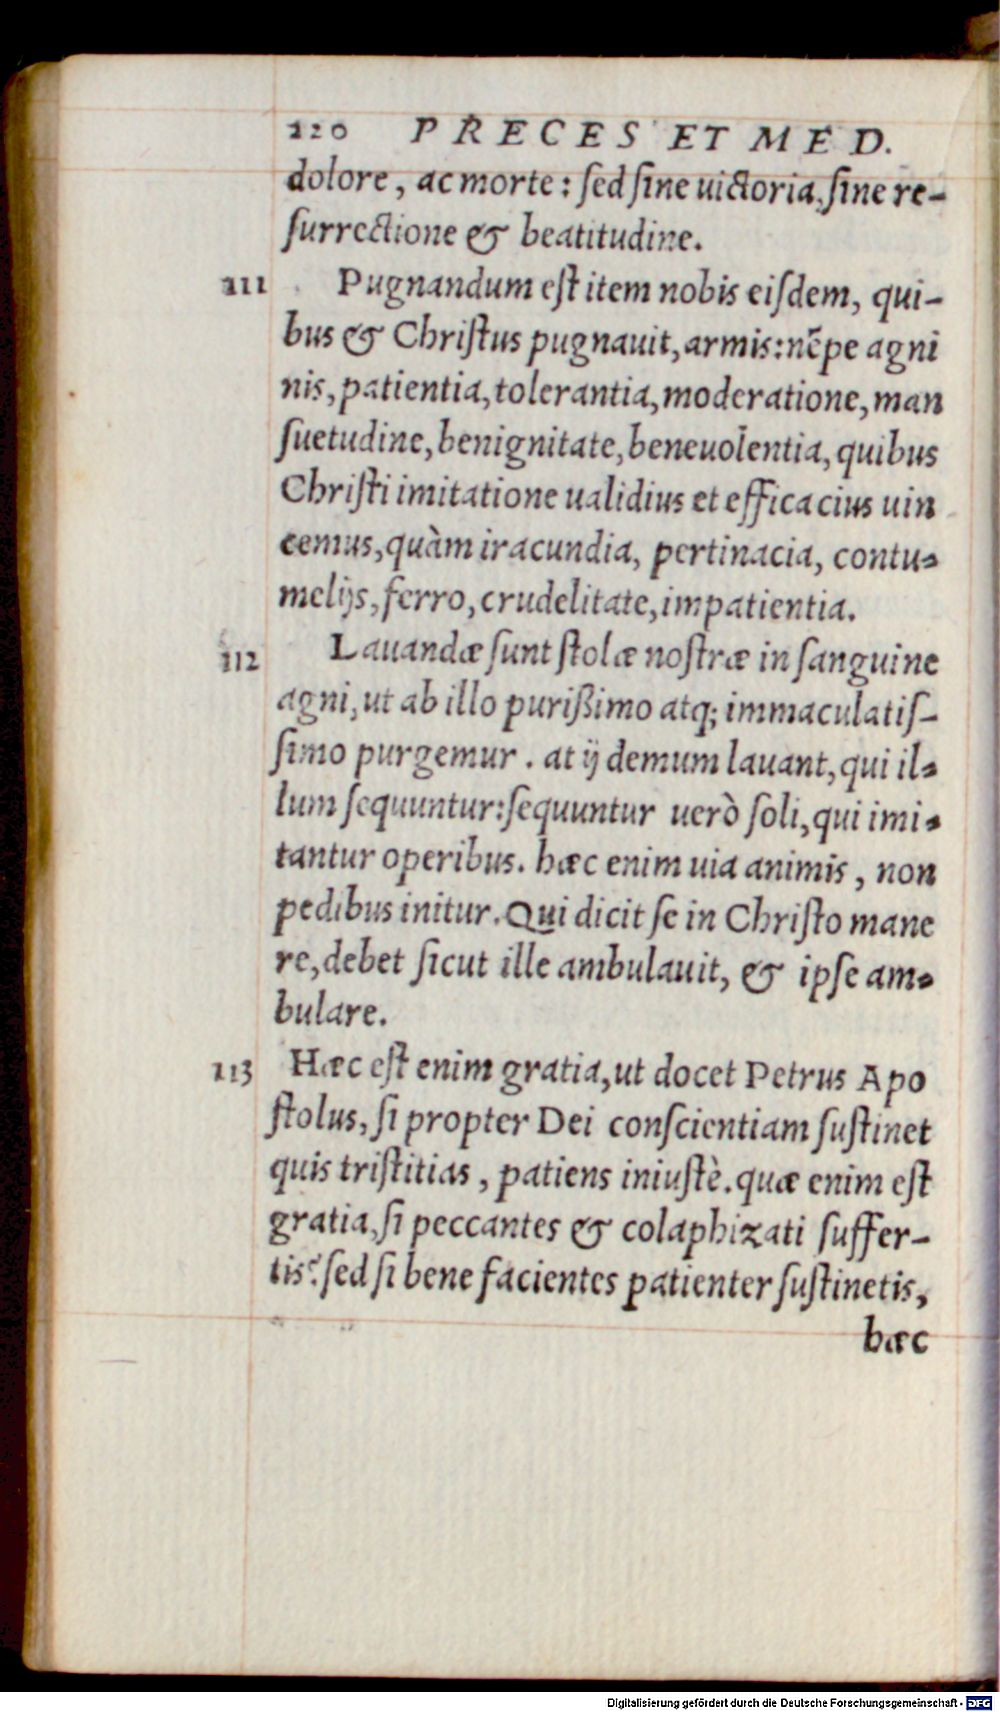 220 PRECES ET MED.
dolore, ac morte: ſed ſine uictoria, ſine re-
ſurrectione & beatitudine.
111 Pugnandum eſt item nobis eiſdem, qui-
bus & Chriſtus pugnauit, armis: nẽpe agni
nis, patientia, tolerantia, moderatione, man
ſuetudine, benignitate, beneuolentia, quibus
Chriſti imitatione ualidius et efficacius uin
cemus, quàm iracundia, pertinacia, contu-
melijs, ferro, crudelitate, impatientia.
112 Lauandæ ſunt ſtolæ noſtræ in ſanguine
agni, ut ab illo purißimo atq; immaculatiſ-
ſimo purgemur. at ij demum lauant, qui il-
lum ſequuntur: ſequuntur uerò ſoli, qui imi-
tantur operibus. hæc enim uia animis, non
pedibus initur. Qui dicit ſe in Chriſto mane
re, debet ſicut ille ambulauit, & ipſe am-
bulare.
113 Hæc eſt enim gratia, ut docet Petrus Apo
ſtolus, ſi propter Dei conſcientiam ſuſtinet
quis triſtitias, patiens iniuſtè. quæ enim eſt
gratia, ſi peccantes & colaphizati ſuffer-
tis? ſed ſi bene facientes patienter ſuſtinetis,
hæc
Digitalisierung gefördert durch die Deutsche Forschungsgemeinschaft - DFG